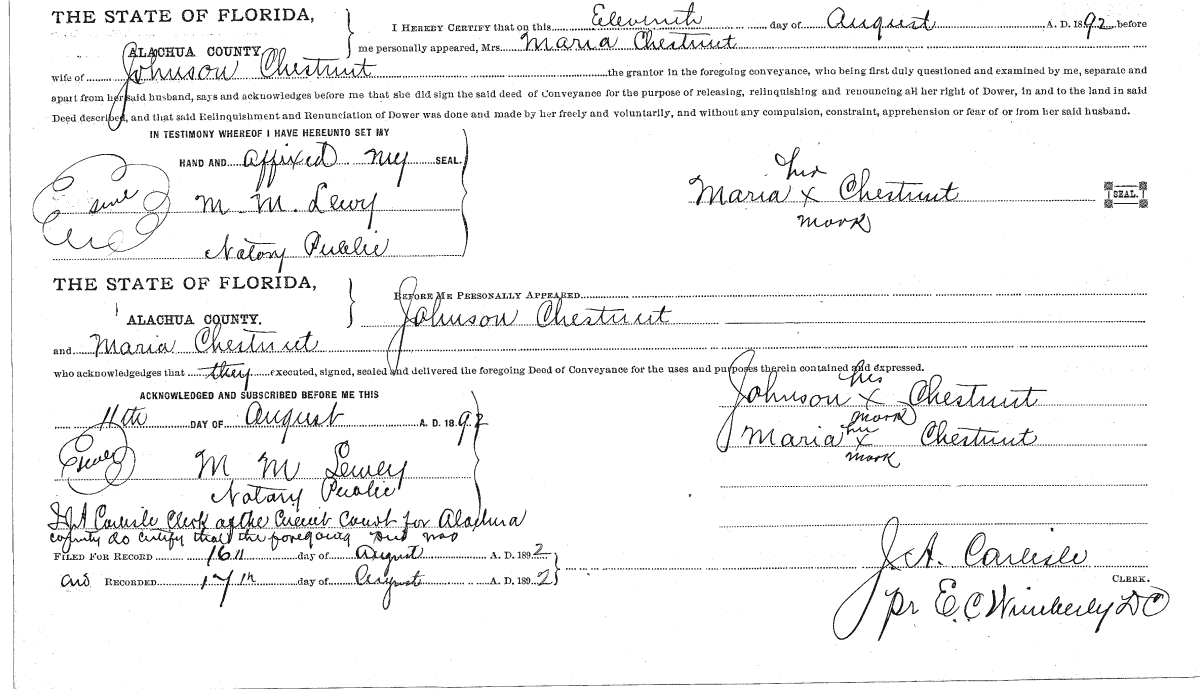 THE STATE OF FLORIDA,
ALACHUA COUNTY.
I HEREBY CERTIFY that on this Eleventh day of August A. D. 1892 before
me personally appeared, Mrs. Maria Chestnut
wife of Johnson Chestnut the grantor in the foregoing conveyance, who being first duly questioned and examined by me, separate and
apart from her said husband, says and acknowledges before me that she did sign the said deed of Conveyance for the purpose of releasing, relinquishing and renouncing all her right of Dower, in and to the land in said
Deed described, and that said Relinquishment and Renunciation of Dower was done and made by her freely and voluntarily, and without any compulsion, constraint, apprehension or fear of or from her said husband.
IN TESTIMONY WHEREOF I HAVE HEREUNTO SET MY
HAND AND affixed my SEAL.
M. M. Lewy
Notary Public
her
Maria x Chestnut
mark
SEAL.
THE STATE OF FLORIDA,
ALACHUA COUNTY.
BEFORE ME PERSONALLY APPEARED
Johnson Chestnut
and Maria Chestnut
who acknowledgedges that they executed, signed, sealed and delivered the foregoing Deed of Conveyance for the uses and purposes therein contained and expressed.
ACKNOWLEDGED AND SUBSCRIBED BEFORE ME THIS
11th DAY OF August A. D. 1892
M M Lewey
Notary Public
his
Johnson x Chestnut
mark
her
Maria x Chestnut
mark
Carlisle Clerk of the Circuit Court for Alachua
county do certify that the foregoing was
FILED FOR RECORD 16th day of August A. D. 1892
and RECORDED 17th day of August A. D. 1892
J. A. Carlisle
CLERK.
pr E. C Wimberly DC